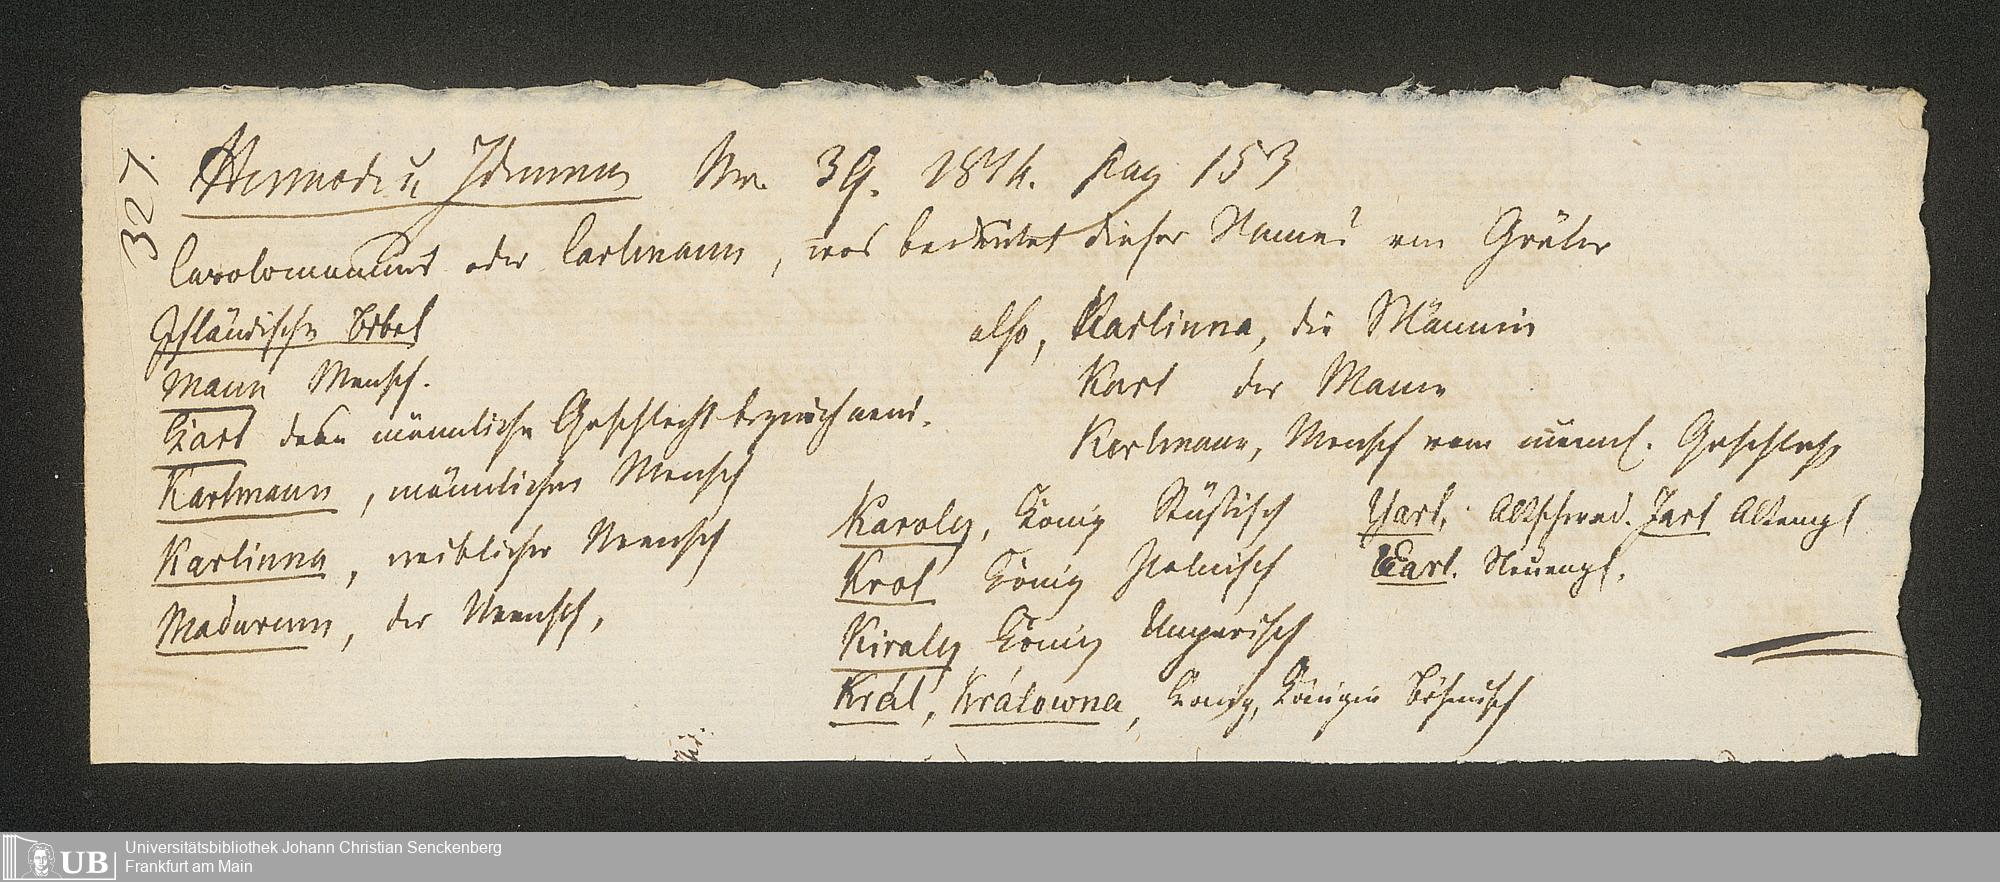 327.
Hermode u Idunna Nr. 39. 1814. pag 153
Carolomannus oder Carlmann, was bedeutet dieser Name? von Gräter
Isländische Bibel
Mann Mensch.
Karl das männliche Geschlecht bezeichnend.
Karlmann, männlicher Mensch
Karlinna, weiblicher Mensch
Madurenn, der Mensch,
also, Karlinna, die Männin
Karl der Mann
Karlmann, Mensch vom männl. Geschlecht
Karoly, König Russisch
Krol König Polnisch
Kiraly König Ungarisch
Král, Králowna, König, Königin Böhmisch
Yarl, Altschwed. Jarl Altengl
Earl. Neuengl.
UB Universitätsbibliothek Johann Christian Senckenberg
Frankfurt am Main